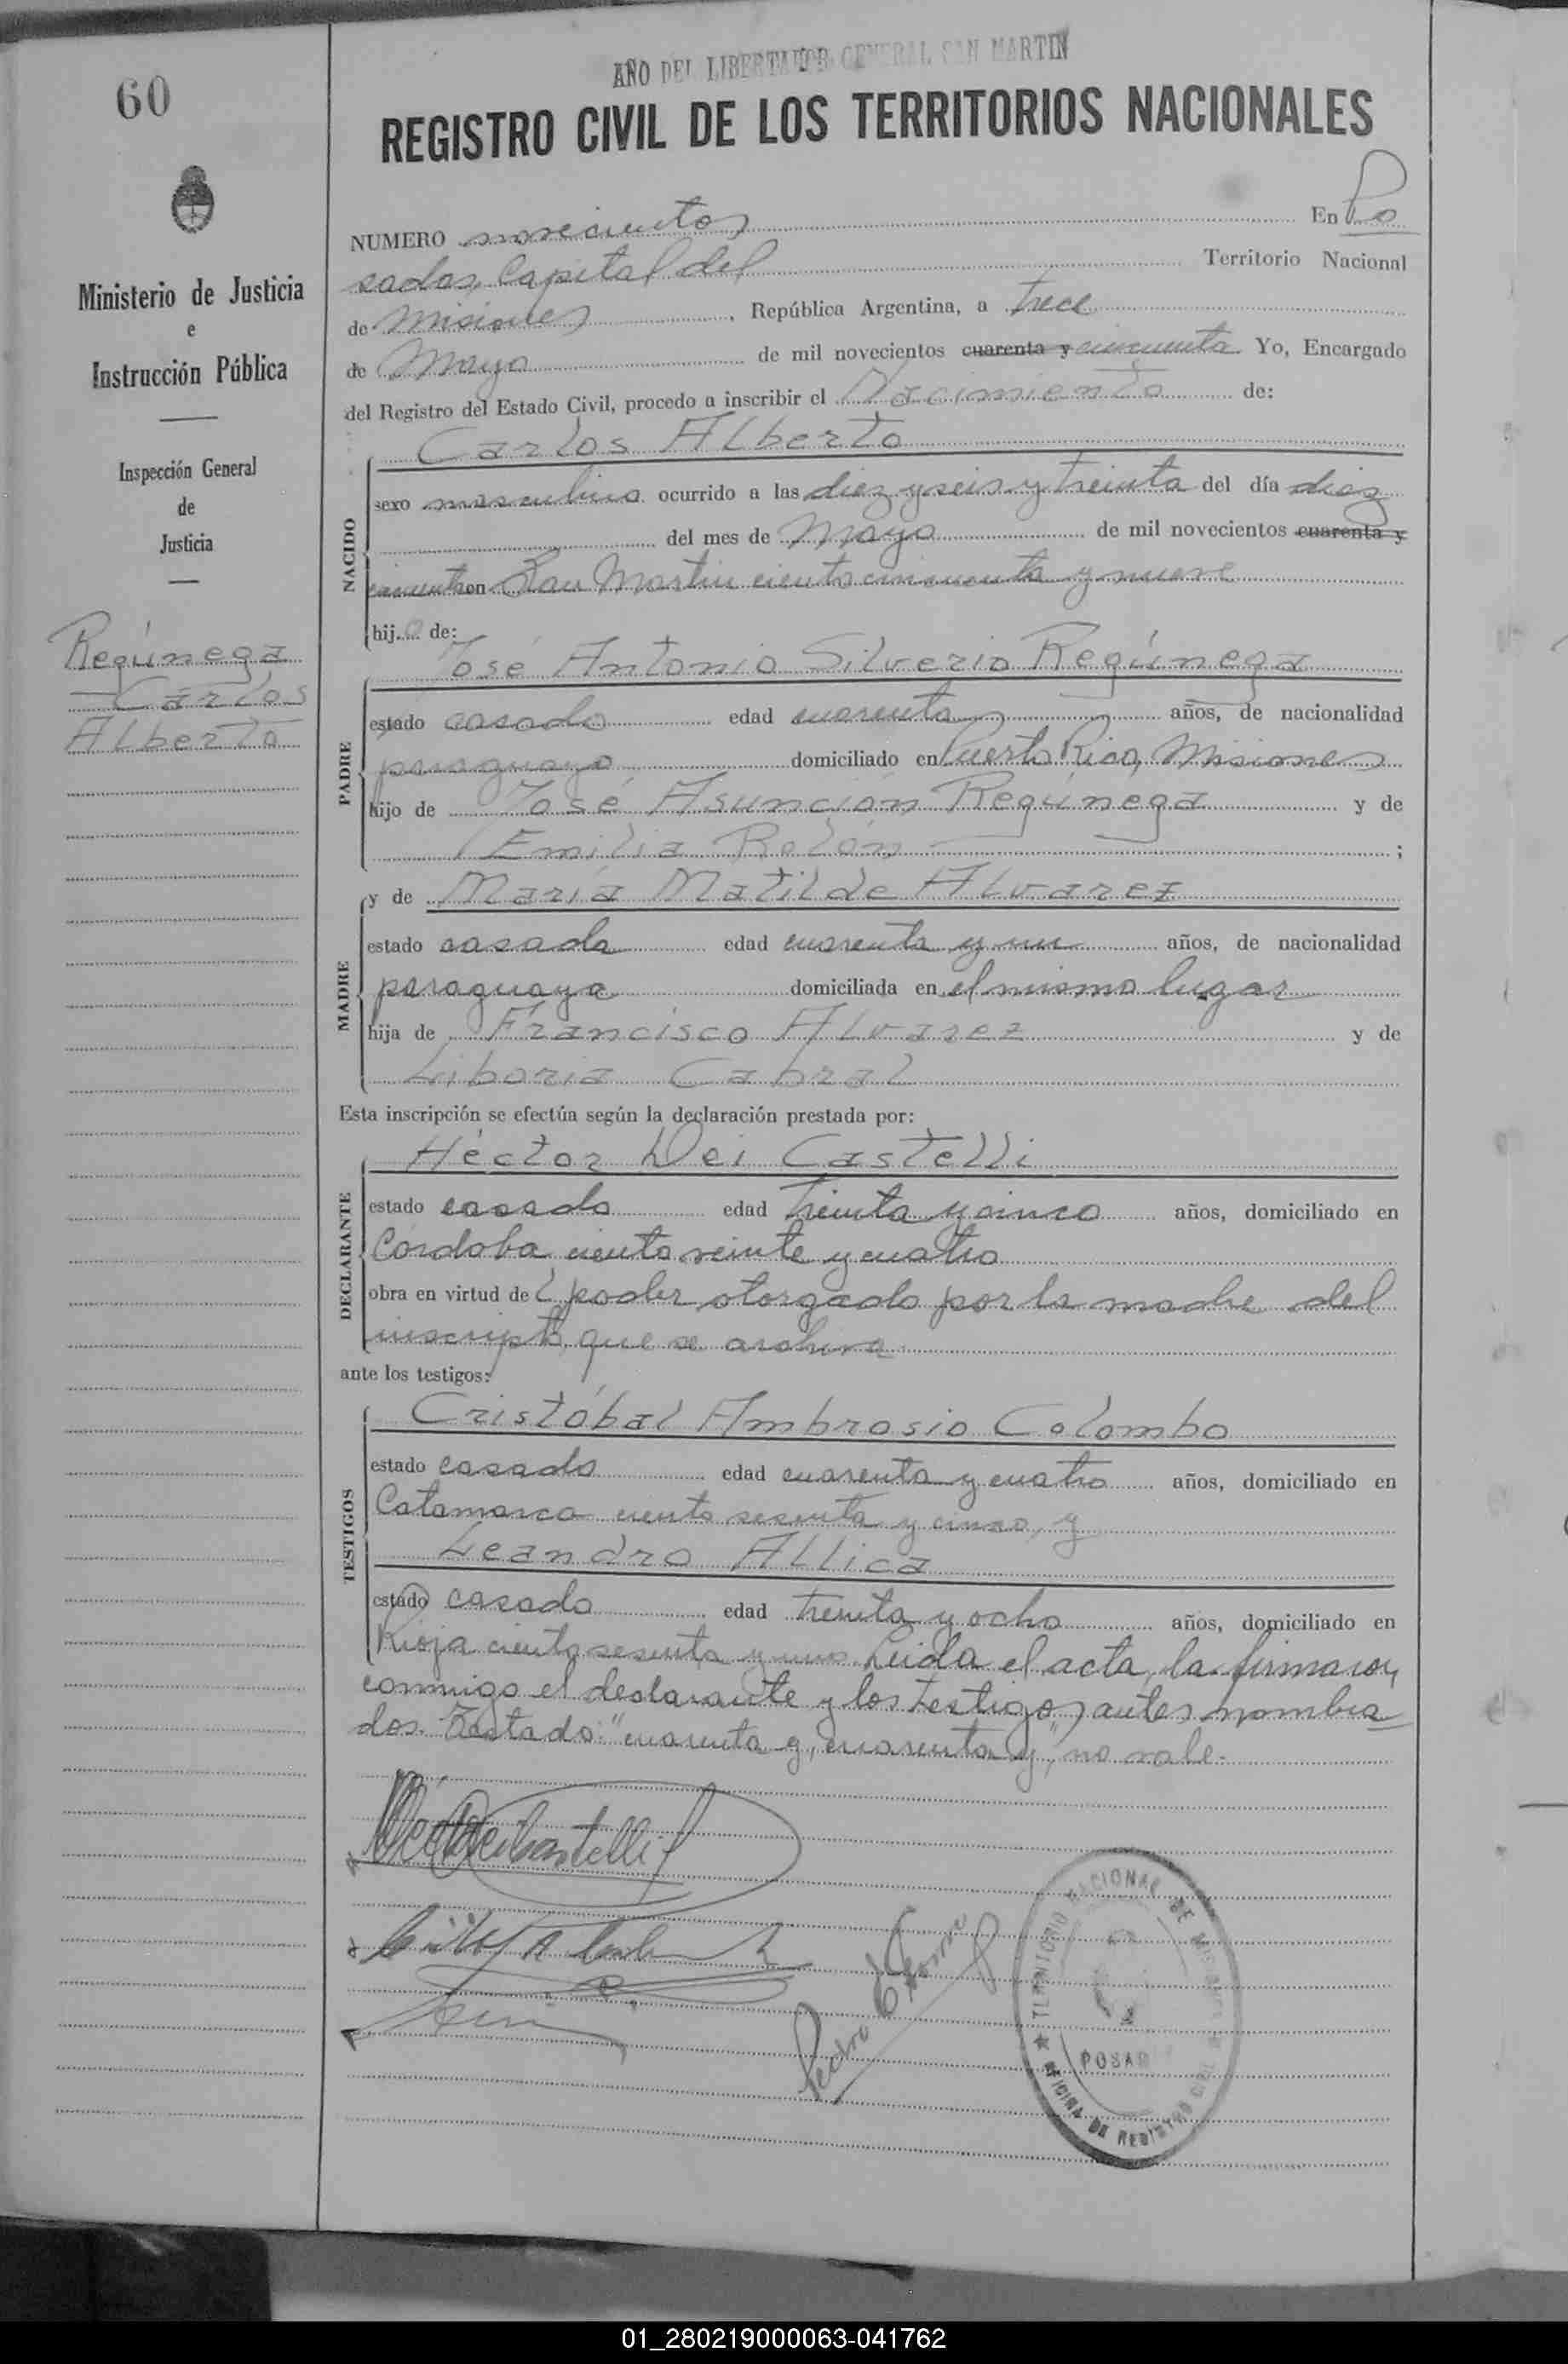 60
AÑO DEL LIBERTADOR GENERAL SAN MARTIN
REGISTRO CIVIL DE LOS TERRITORIOS NACIONALES
Ministerio de Justicia
e
Instrucción Pública
Inspección General
de
Justicia
Regúnega
Carlos
Alberto
NUMERO novecientos En Po
sadas, Capital del Territorio Nacional
de Misiones, República Argentina, a trece
de Mayo de mil novecientos cuarenta y cincuenta Yo, Encargado
del Registro del Estado Civil, procedo a inscribir el Nacimiento de:
Carlos Alberto
NACIDO
sexo masculino ocurrido a las diez y seis y treinta del día diez
del mes de Mayo de mil novecientos cuarenta y
cincuenta en San Martin ciento cincuenta y nueve
hijo de:
José Antonio Silverio Regúnega
PADRE
estado casado edad cuarenta años, de nacionalidad
paraguayo domiciliado en Puerto Rico, Misiones
hijo de José Asunción Regúnega y de
Emilia Rolón ;
y de María Matilde Alvarez
MADRE
estado casada edad cuarenta y un años, de nacionalidad
paraguaya domiciliada en el mismo lugar
hija de Francisco Alvarez y de
Liboria Cabral
Esta inscripción se efectúa según la declaración prestada por:
Héctor Dei Castelli
DECLARANTE
estado casado edad treinta y cinco años, domiciliado en
Córdoba ciento veinte y cuatro
obra en virtud de poder otorgado por la madre del
inscripto, que se archiva
ante los testigos:
Cristóbal Ambrosio Colombo
TESTIGOS
estado casado edad cuarenta y cuatro años, domiciliado en
Catamarca ciento sesenta y cinco, y
Leandro Allica
estado casado edad treinta y ocho años, domiciliado en
Rioja ciento sesenta y uno. Leida el acta, la firmaron
conmigo el declarante y los testigos antes nombra
dos. Testado: "cuarenta y, cuarenta y", no vale.
TERRITORIO NACIONAL DE MISIONES
POSAD
OFICINA DE REGISTRO CIVIL
01_280219000063-041762